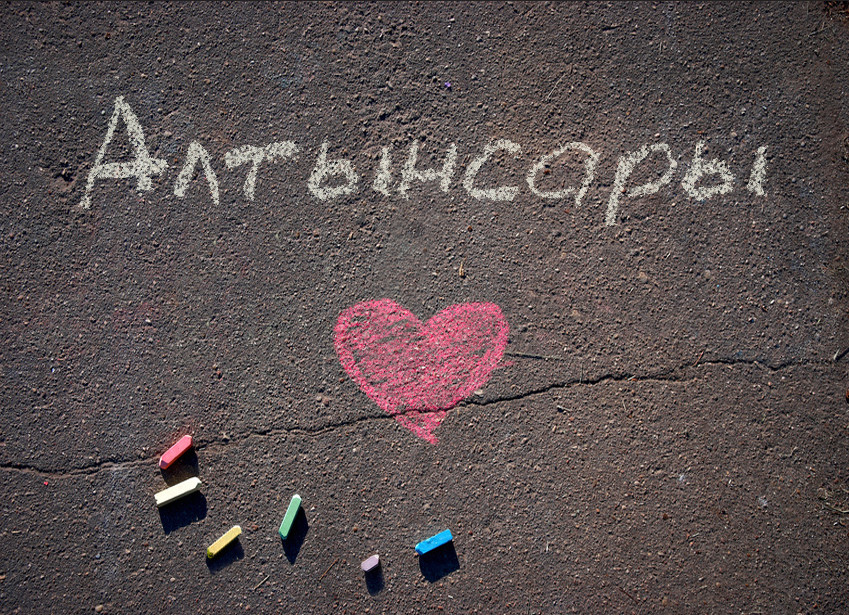 Алтынсары